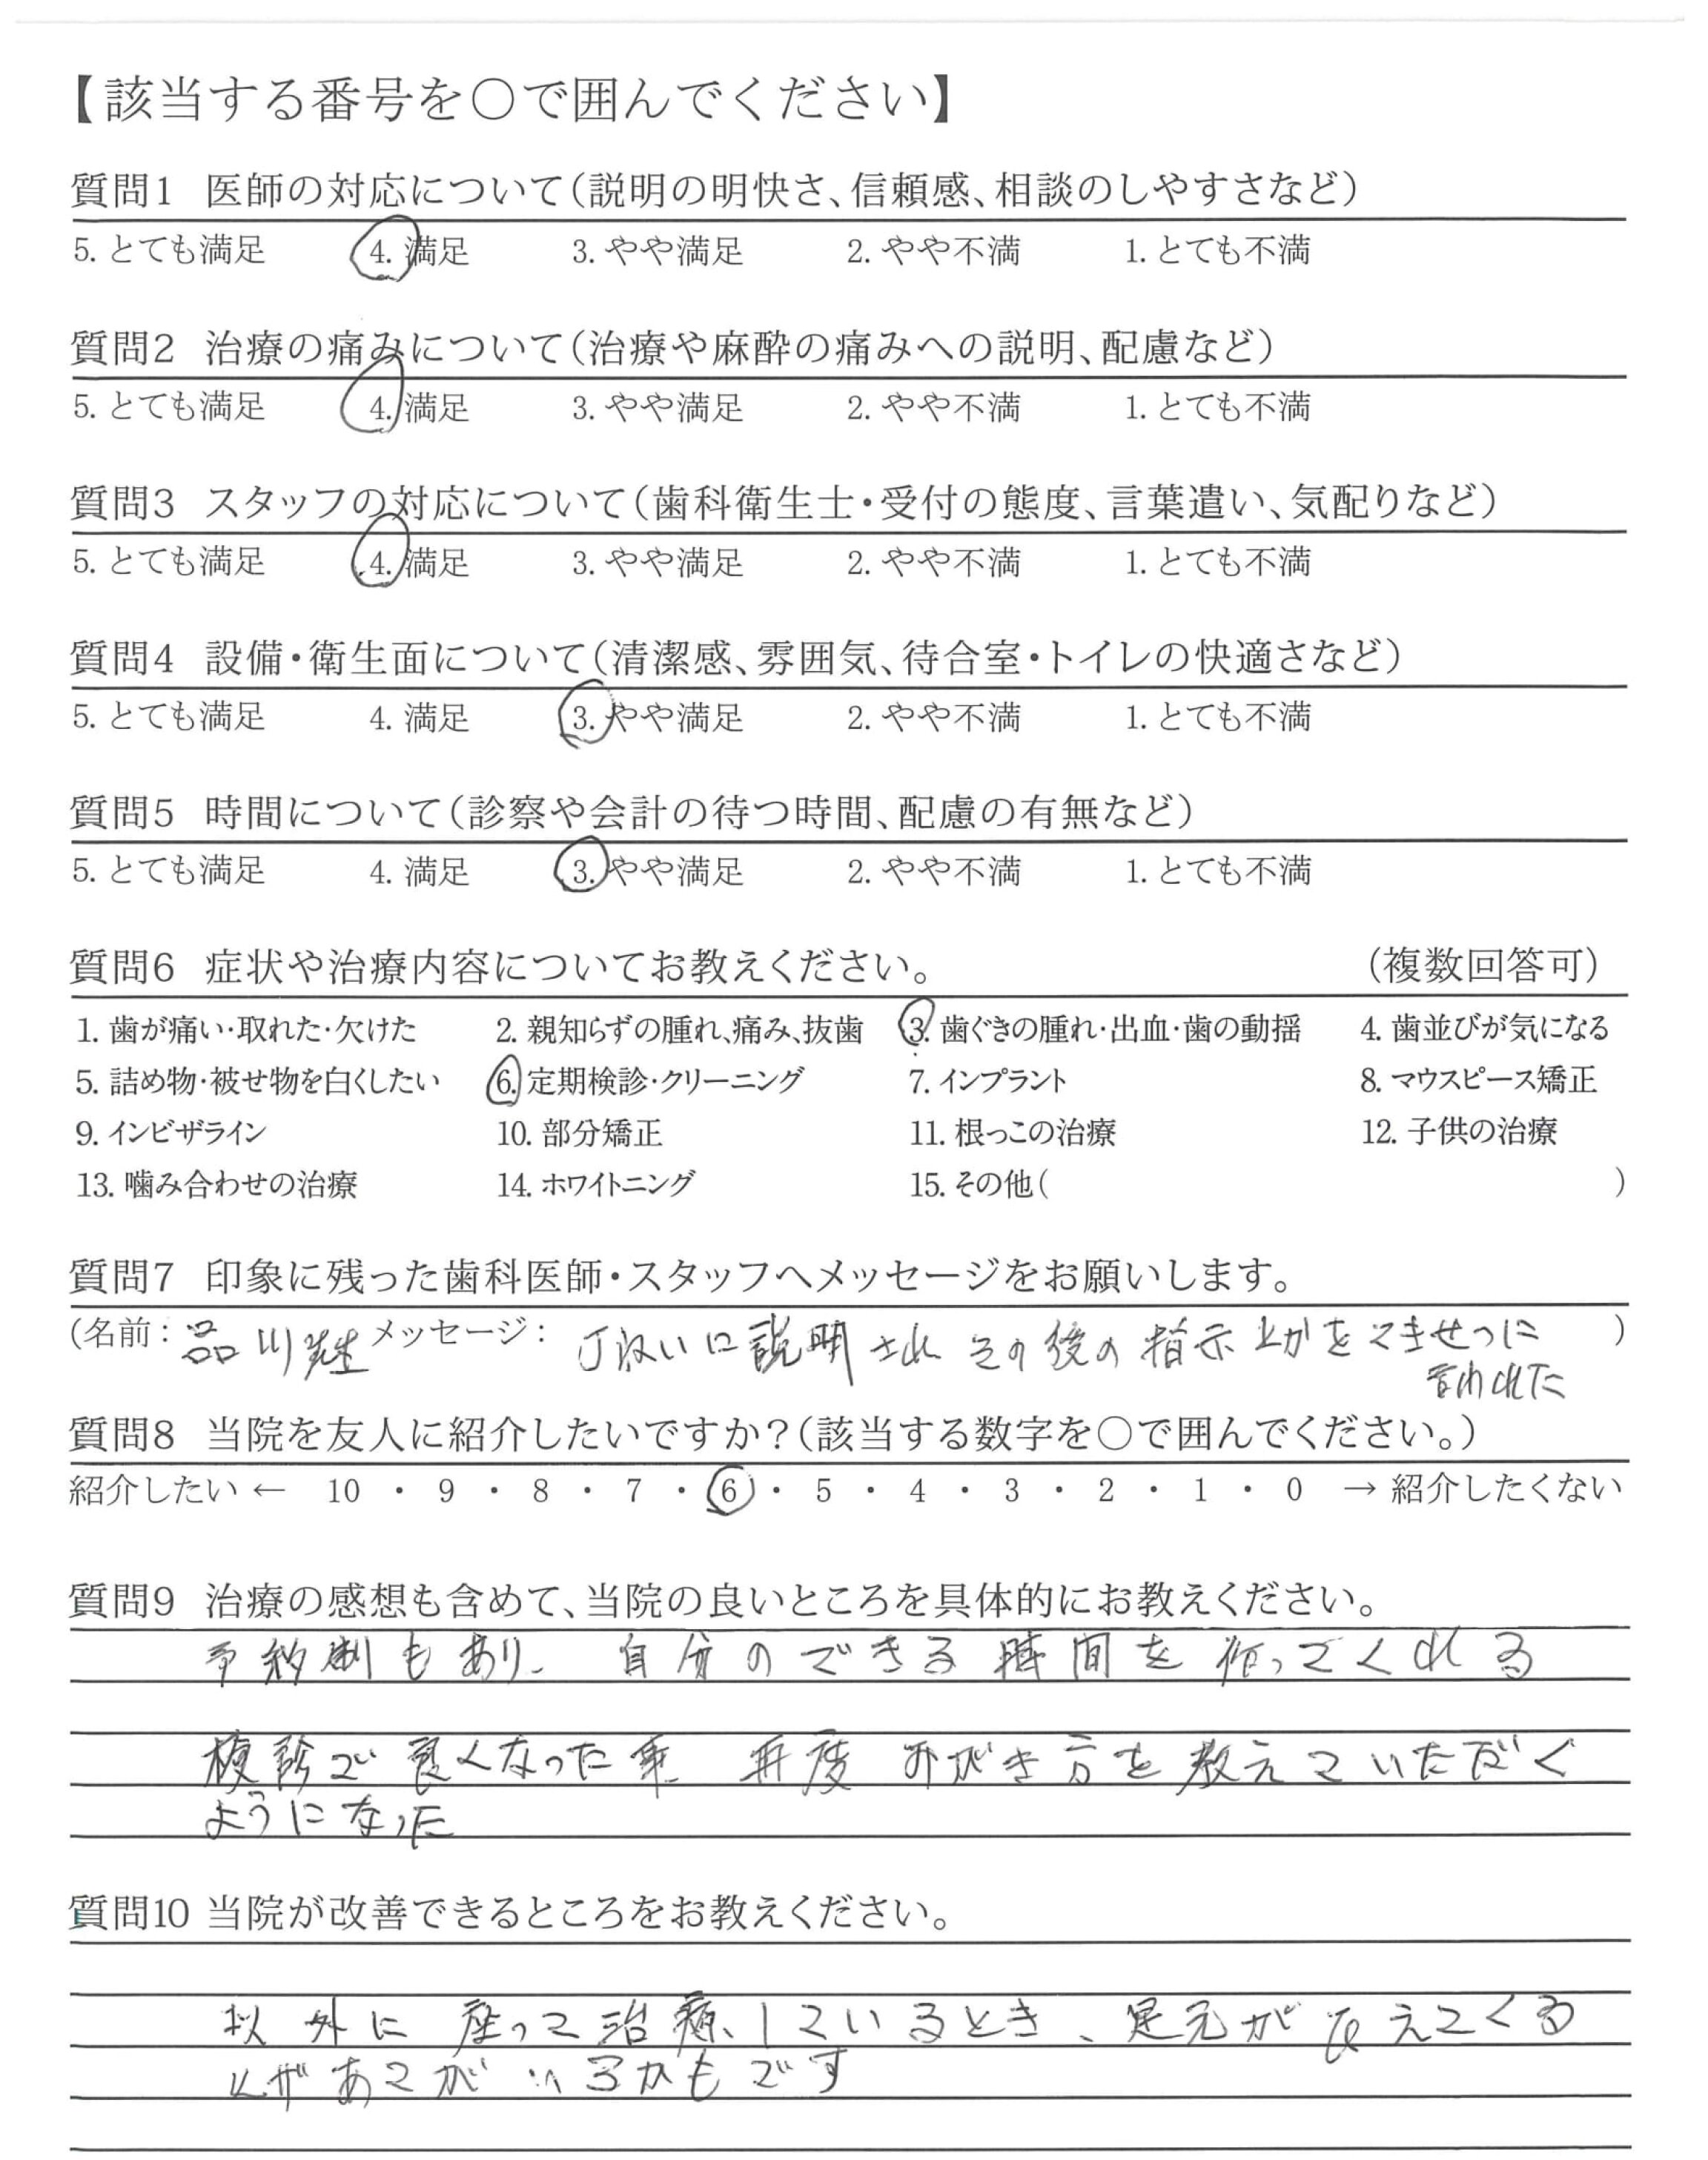 【該当する番号を○で囲んでください】
質問1 医師の対応について（説明の明快さ、信頼感、相談のしやすさなど）
5. とても満足 4. 満足 3. やや満足 2. やや不満 1. とても不満
質問2 治療の痛みについて（治療や麻酔の痛みへの説明、配慮など）
5. とても満足 4. 満足 3. やや満足 2. やや不満 1. とても不満
質問3 スタッフの対応について（歯科衛生士・受付の態度、言葉遣い、気配りなど）
5. とても満足 4. 満足 3. やや満足 2. やや不満 1. とても不満
質問4 設備・衛生面について（清潔感、雰囲気、待合室・トイレの快適さなど）
5. とても満足 4. 満足 3. やや満足 2. やや不満 1. とても不満
質問5 時間について（診察や会計の待つ時間、配慮の有無など）
5. とても満足 4. 満足 3. やや満足 2. やや不満 1. とても不満
質問6 症状や治療内容についてお教えください。 （複数回答可）
1. 歯が痛い・取れた・欠けた 2. 親知らずの腫れ、痛み、抜歯 3. 歯ぐきの腫れ・出血・歯の動揺 4. 歯並びが気になる
5. 詰め物・被せ物を白くしたい 6. 定期検診・クリーニング 7. インプラント 8. マウスピース矯正
9. インビザライン 10. 部分矯正 11. 根っこの治療 12. 子供の治療
13. 噛み合わせの治療 14. ホワイトニング 15. その他（ ）
質問7 印象に残った歯科医師・スタッフへメッセージをお願いします。
（名前：品川先生 メッセージ： 丁ねいに説明され その後の指示 ）
言われた
質問8 当院を友人に紹介したいですか？（該当する数字を○で囲んでください。）
紹介したい ← 10 ・ 9 ・ 8 ・ 7 ・ 6 ・ 5 ・ 4 ・ 3 ・ 2 ・ 1 ・ 0 → 紹介したくない
質問9 治療の感想も含めて、当院の良いところを具体的にお教えください。
予約制もあり、自分のできる時間を作ってくれる
検診で良くなった事 再度 みがき方を教えていただく
ようになった
質問10 当院が改善できるところをお教えください。
以外に 座って治療しているとき、足元が えてくる
かもです